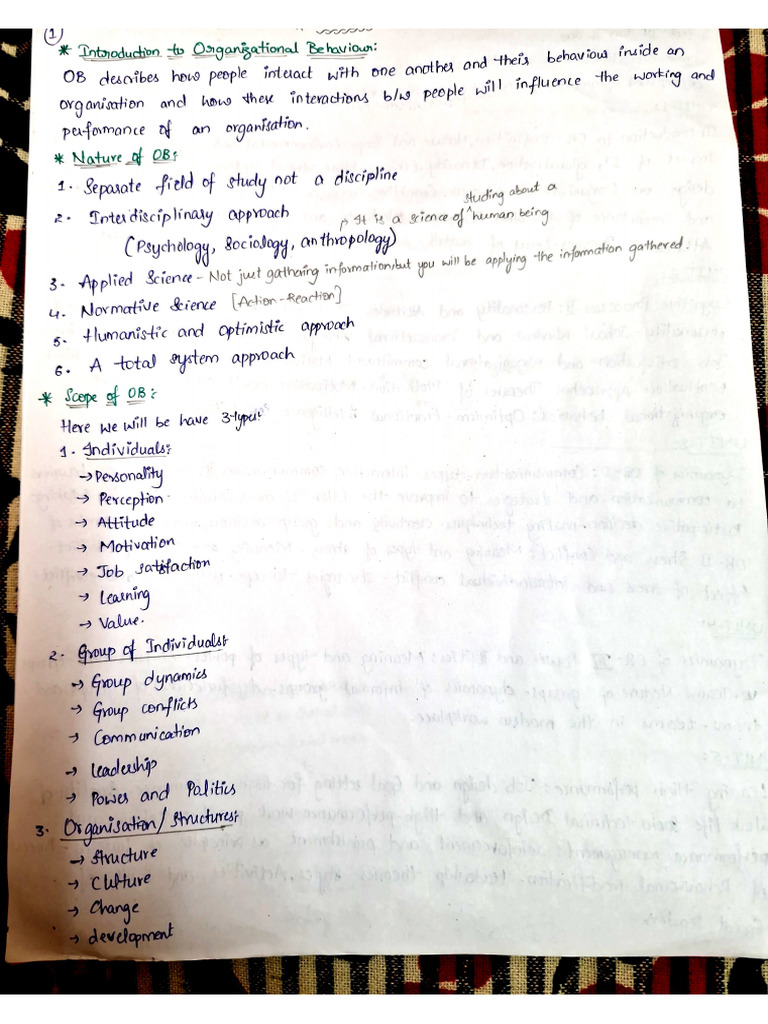 1
* Introduction to Organizational Behaviour:
OB describes how people interact with one another and their behaviour inside an
organisation and how these interactions b/w people will influence the working and
performance of an organisation.
* Nature of OB:
1. Separate field of study not a discipline
2. Interdisciplinary approach
(Psychology, Sociology, anthropology)
→ It is a science of studing about a human being
3. Applied Science - Not just gathering information, but you will be applying the information gathered.
4. Normative Science [Action-Reaction]
5. Humanistic and Optimistic approach
6. A total system approach
* Scope of OB:
Here we will be have 3-types:
1. Individuals:
→ Personality
→ Perception
→ Attitude
→ Motivation
→ Job satisfaction
→ Learning
→ Value.
2. Group of Individuals:
→ Group dynamics
→ Group conflicts
→ Communication
→ Leadership
→ Power and Politics
3. Organisation/Structures:
→ Structure
→ Culture
→ Change
→ development